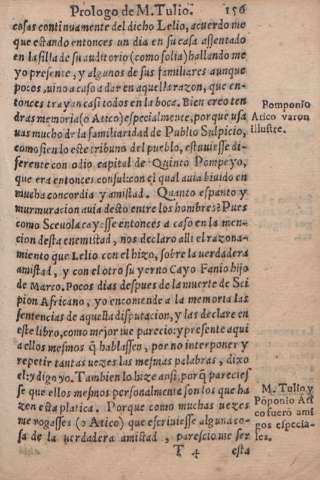 Prologo de M. Tulio. 156
cosas continuamente del dicho Lelio, acuerdo me
que estando entonces un dia en su casa assentado
en la silla de su auditorio (como solia) hallando me
yo presente, y algunos de sus familiares aunque
pocos, uino a caso a dar en aquella razon, que en-
tonces trayan casi todos en la boca. Bien creo ten
dras memoria (o Atico) especialmente, porque usa
uas mucho de la familiaridad de Publio Sulpicio,
como siendo este tribuno del pueblo, estuuiesse di-
ferente con odio capital de Quinto Pompeyo,
que era entonces consul: con el qual auia biuido en
mucha concordia y amistad. Quanto espanto y
murmuracion auia desto entre los hombres? Pues
como Sceuola cayesse entonces a caso en la men-
cion desta enemistad, nos declaro alli el razona-
miento que Lelio con el hizo, sobre la uerdadera
amistad, y con el otro su yerno Cayo Fanio hijo
de Marco. Pocos dias despues de la muerte de Sci
pion Africano, yo encomende a la memoria las
sentencias de aquesta disputacion, y las declare en
este libro, como mejor me parecio: y presente aqui
a ellos mesmos q̃ hablassen, por no interponer y
repetir tantas uezes las mesmas palabras, dixo
el: y digo yo. Tambien lo hize ansi, porq̃ pareciesse
se que ellos mesmos personalmente son los que ha
zen esta platica. Porque como muchas uezes
me rogasses (o Atico) que escriuiesse alguna co-
sa de la uerdadera amistad, parescio me ser
T 4 esta
Pomponio
Atico varon
illustre.
M. Tulio y
Põponio Ati
co fuerõ ami
gos especia-
les.